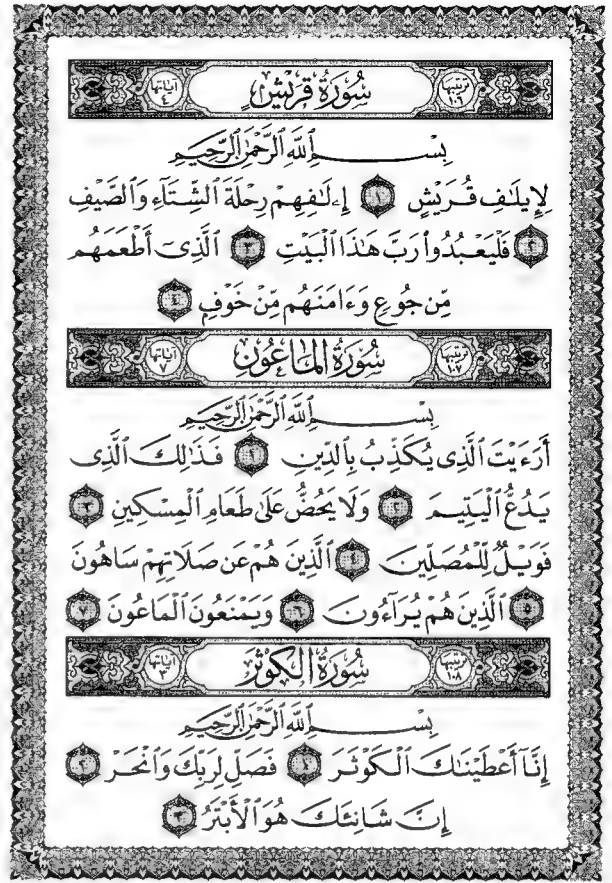 ترتيبها ١٠٦ سُورَةُ قُرَيْشٍ آياتها ٤
بِسْمِ ٱللَّهِ ٱلرَّحْمَٰنِ ٱلرَّحِيمِ
لِإِيلَٰفِ قُرَيْشٍ ١ إِۦلَٰفِهِمْ رِحْلَةَ ٱلشِّتَآءِ وَٱلصَّيْفِ
٢ فَلْيَعْبُدُوا۟ رَبَّ هَٰذَا ٱلْبَيْتِ ٣ ٱلَّذِىٓ أَطْعَمَهُم
مِّن جُوعٍ وَءَامَنَهُم مِّنْ خَوْفٍ ٤
ترتيبها ١٠٧ سُورَةُ المَاعُونِ آياتها ٧
بِسْمِ ٱللَّهِ ٱلرَّحْمَٰنِ ٱلرَّحِيمِ
أَرَءَيْتَ ٱلَّذِى يُكَذِّبُ بِٱلدِّينِ ١ فَذَٰلِكَ ٱلَّذِى
يَدُعُّ ٱلْيَتِيمَ ٢ وَلَا يَحُضُّ عَلَىٰ طَعَامِ ٱلْمِسْكِينِ ٣
فَوَيْلٌ لِّلْمُصَلِّينَ ٤ ٱلَّذِينَ هُمْ عَن صَلَاتِهِمْ سَاهُونَ
٥ ٱلَّذِينَ هُمْ يُرَآءُونَ ٦ وَيَمْنَعُونَ ٱلْمَاعُونَ ٧
ترتيبها ١٠٨ سُورَةُ الكَوْثَرِ آياتها ٣
بِسْمِ ٱللَّهِ ٱلرَّحْمَٰنِ ٱلرَّحِيمِ
إِنَّآ أَعْطَيْنَٰكَ ٱلْكَوْثَرَ ١ فَصَلِّ لِرَبِّكَ وَٱنْحَرْ ٢
إِنَّ شَانِئَكَ هُوَ ٱلْأَبْتَرُ ٣